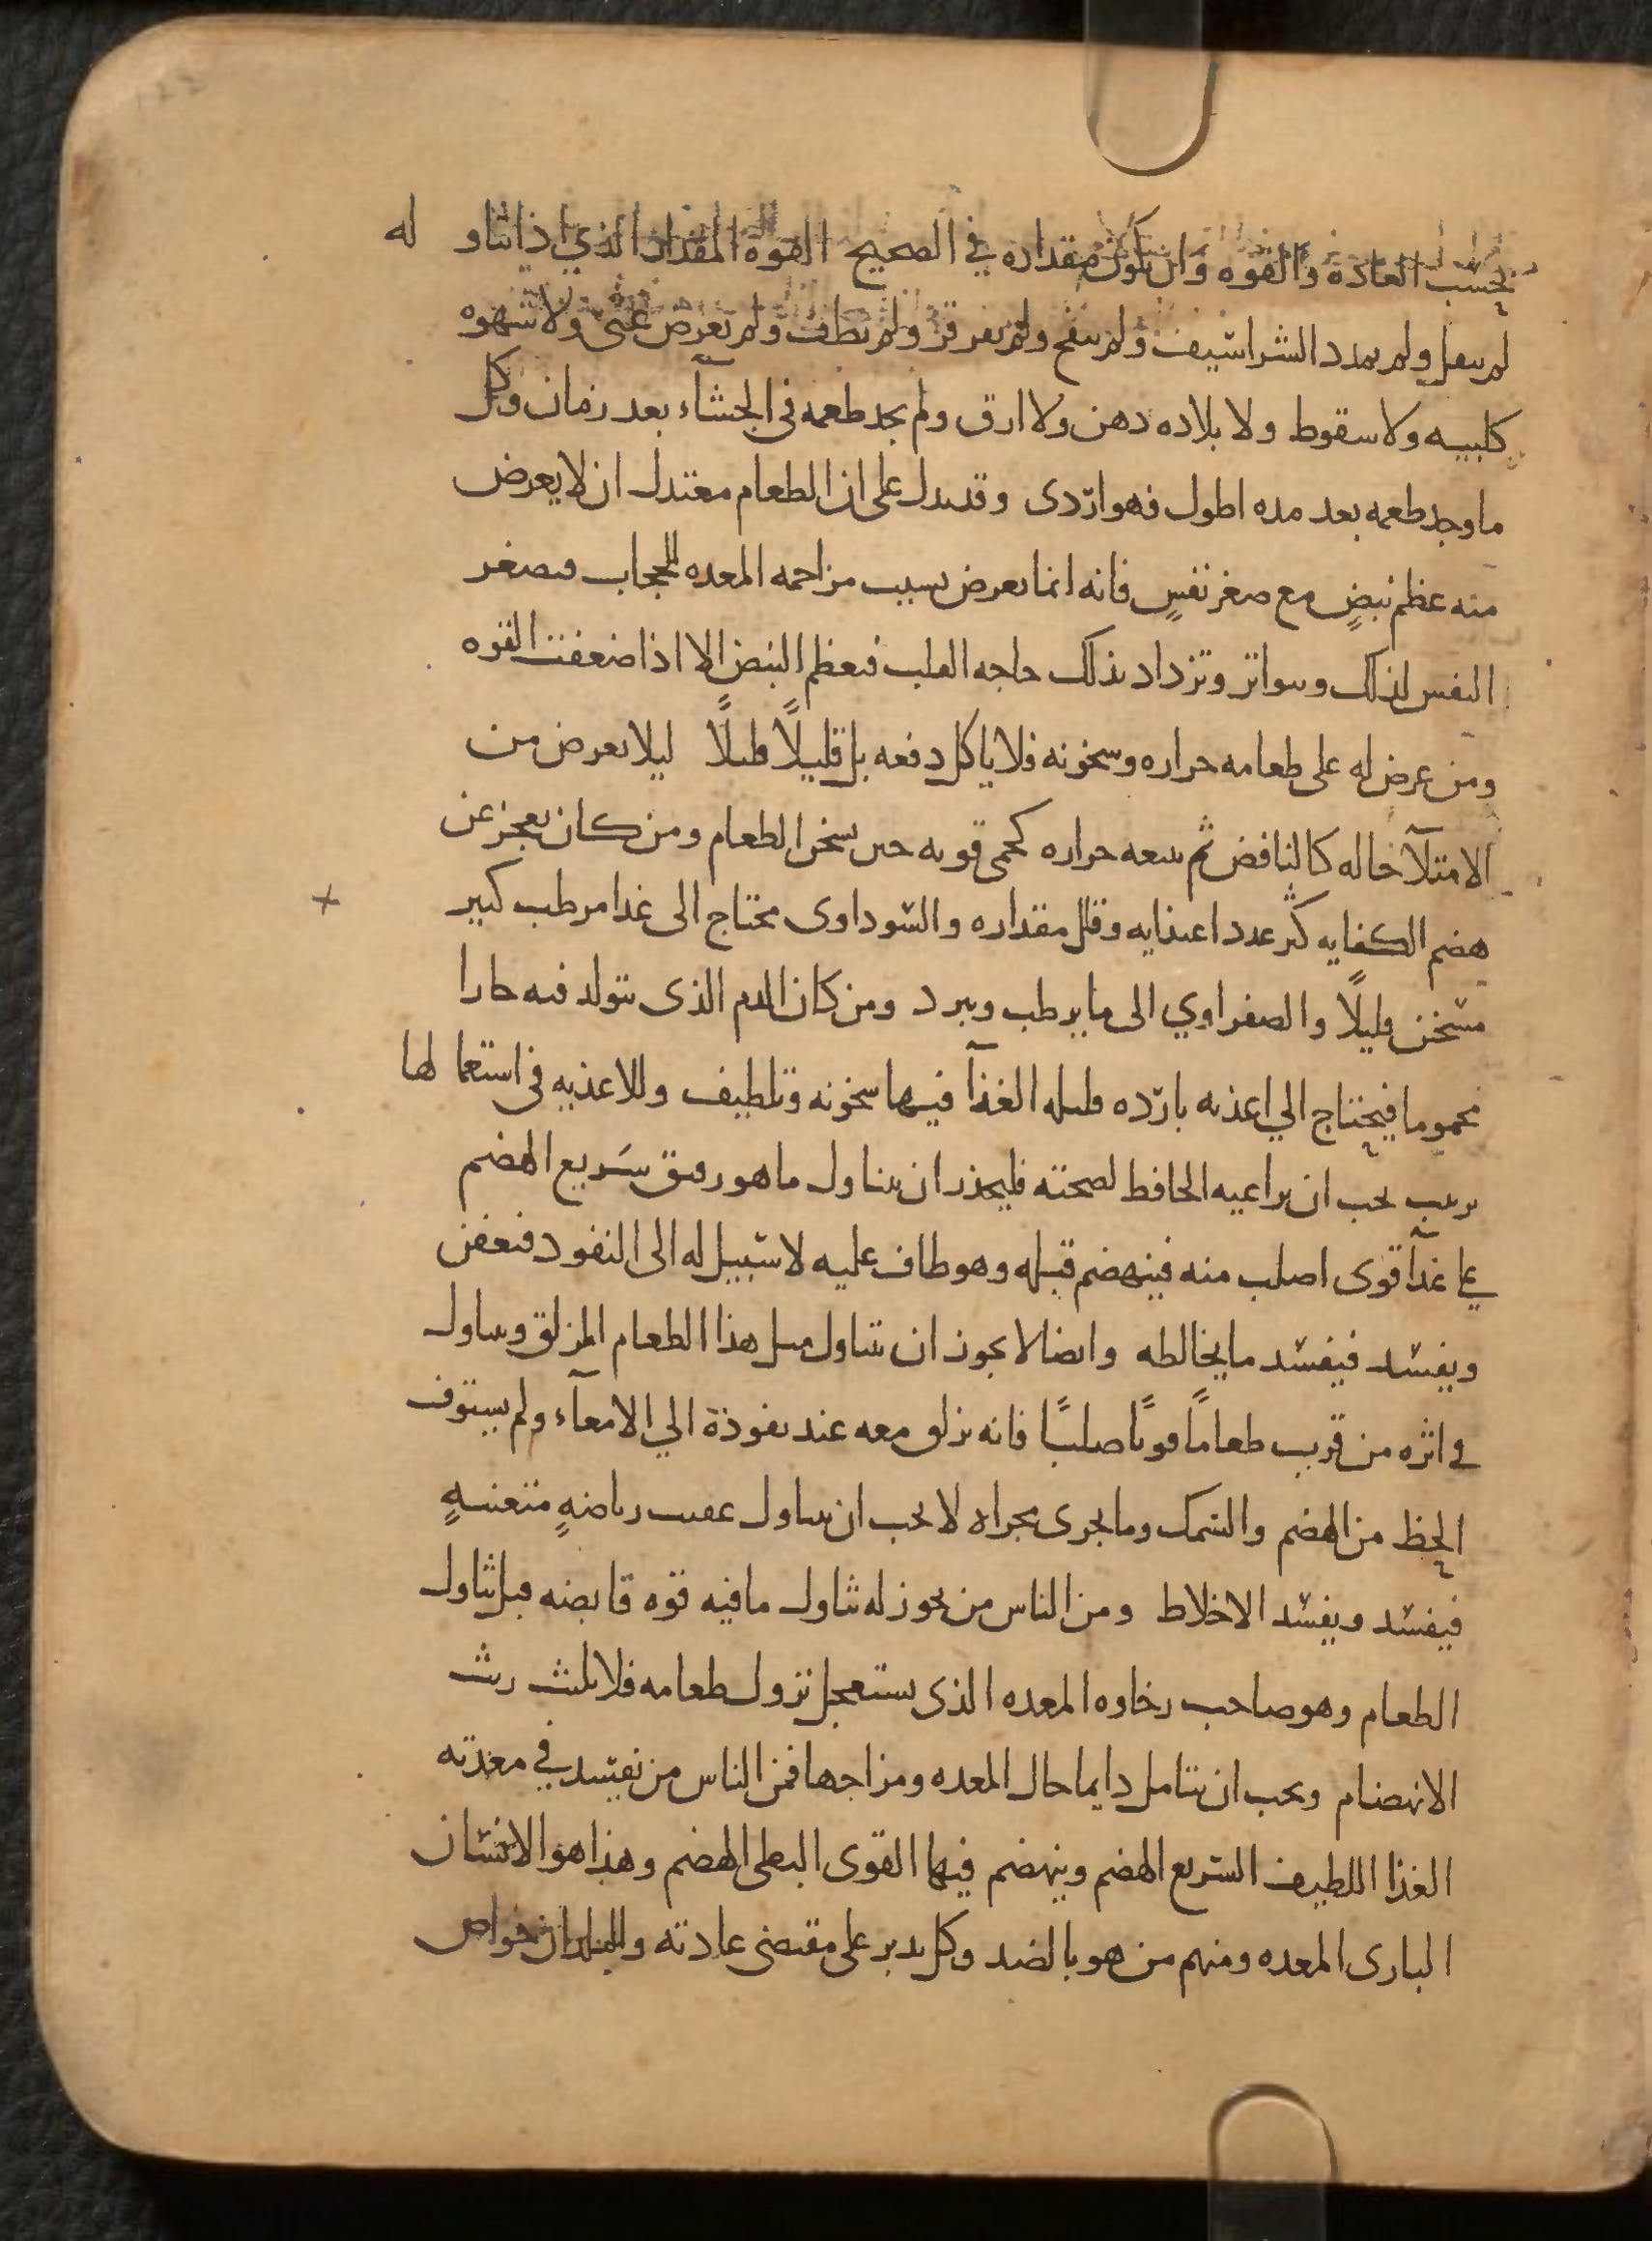 بحسب العادة والقوه وان يكون مقداره في الصحيح القوة المقدار الذي اذا تناوله
لم يثقل ولم يمدد الشراسيف ولم ينفخ ولم يقرقر ولم يطف ولم يعرض غثى ولا شهوه
كلبيه ولا سقوط ولا بلاده ذهن ولا ارق ولم يجد طعمه في الجشآء بعد زمان وكل
ما وجد طعمه بعد مده اطول فهو اردى وقد يدل على ان الطعام معتدل ان لا يعرض
منه عظم نبضٍ مع صغر نفسٍ فانه انما يعرض بسبب مزاحمه المعده للحجاب فيصغر
النفس لذلك ويتواتر وتزداد بذلك حاجه القلب فيعظم النبض الا اذا ضعفت القوه
ومن عرض له على طعامه حراره وسخونه فلا ياكل دفعه بل قليلاً قليلاً ليلا يعرض من
الامتلآ حاله كالنافض ثم يتبعه حراره كحمى قويه حين يسخن الطعام ومن كان يعجز عن
هضم الكفايه كثر عدد اغذايه وقلل مقداره والسوداوى محتاج الى غذا مرطب كثير
مسخن قليلاً والصفراوي الى ما يرطب ويبرد ومن كان الدم الذى يتولد فيه حارا
محموما فيحتاج الي اغذيه بارده قليله الغذآ فيها سخونه وتلطيف وللاغذيه في استعمالها
ترتيب يجب ان يراعيه الحافظ لصحته فليحذر ان يتناول ما هو رقيق سَريع الهضم
على غذآ قوى اصلب منه فينهضم قبله وهو طاف عليه لا سبيل له الى النفود فيعفن
ويفسد فيفسد ما يخالطه وايضا لا يجوز ان يتناول مثل هذا الطعام المزلق ويتناول
في اثره من قريب طعاماً قوياً صلباً فانه يزلق معه عند نفوذة الي الامعآء ولم يستوف
الحظ من الهضم والسمك وما يجرى مجراه لا يجب ان يتناول عقيب رياضهٍ متعبهٍ
فيفسد ويفسد الاخلاط ومن الناس من يجوز له تناول ما فيه قوه قابضه قبل تناول
الطعام وهو صاحب رخاوه المعده الذى يستعجل نزول طعامه فلا يلبث ريث
الانهضام ويجب ان يتامل دايما حال المعده ومزاجها فمن الناس من يفسد في معدته
الغذا اللطيف السريع الهضم وينهضم فيها القوى البطى الهضم وهذا هو الانسان
النارى المعده ومنهم من هو بالضد وكل يدبر على مقتضى عادته وللبلدان خواص